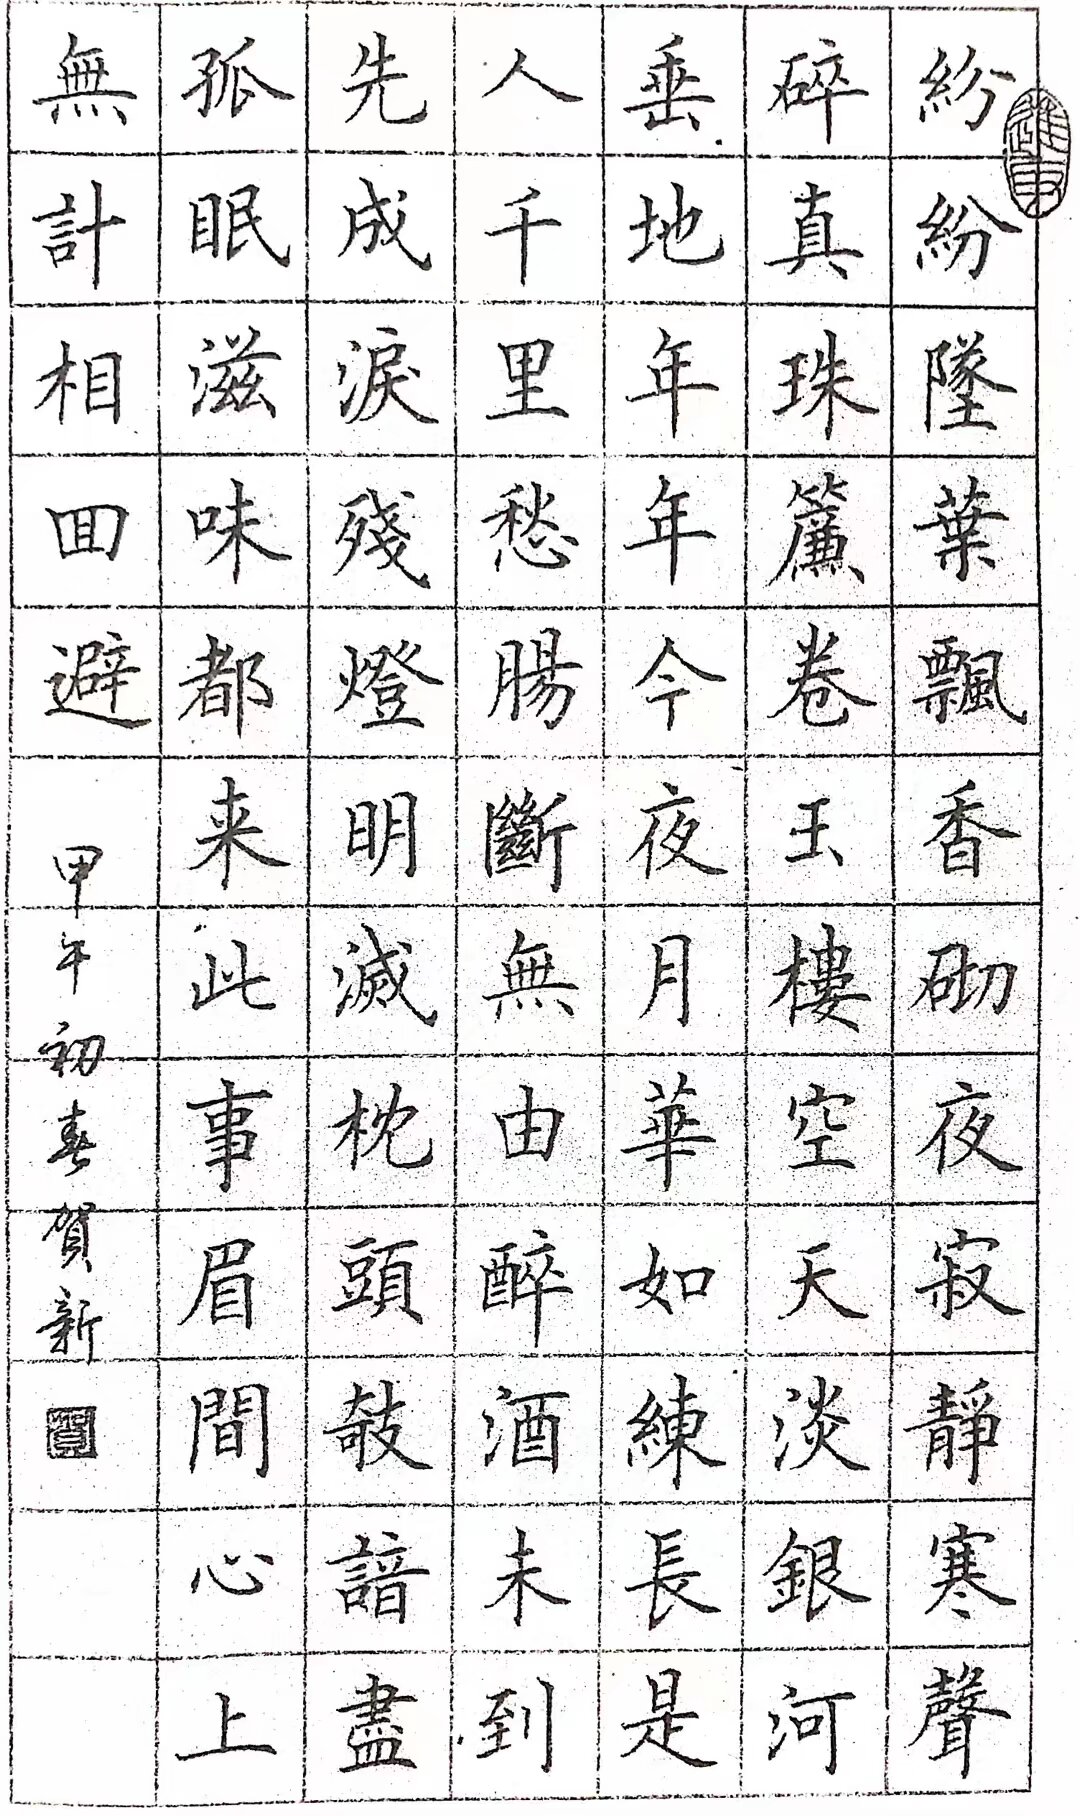 紛紛墜葉飄香砌夜寂靜寒聲
碎真珠簾卷玉樓空天淡銀河
垂地年年今夜月華如練長是
人千里愁腸斷無由醉酒未到
先成淚殘燈明滅枕頭攲諳盡
孤眠滋味都来此事眉間心上
無計相回避
甲午初春賀新
賀